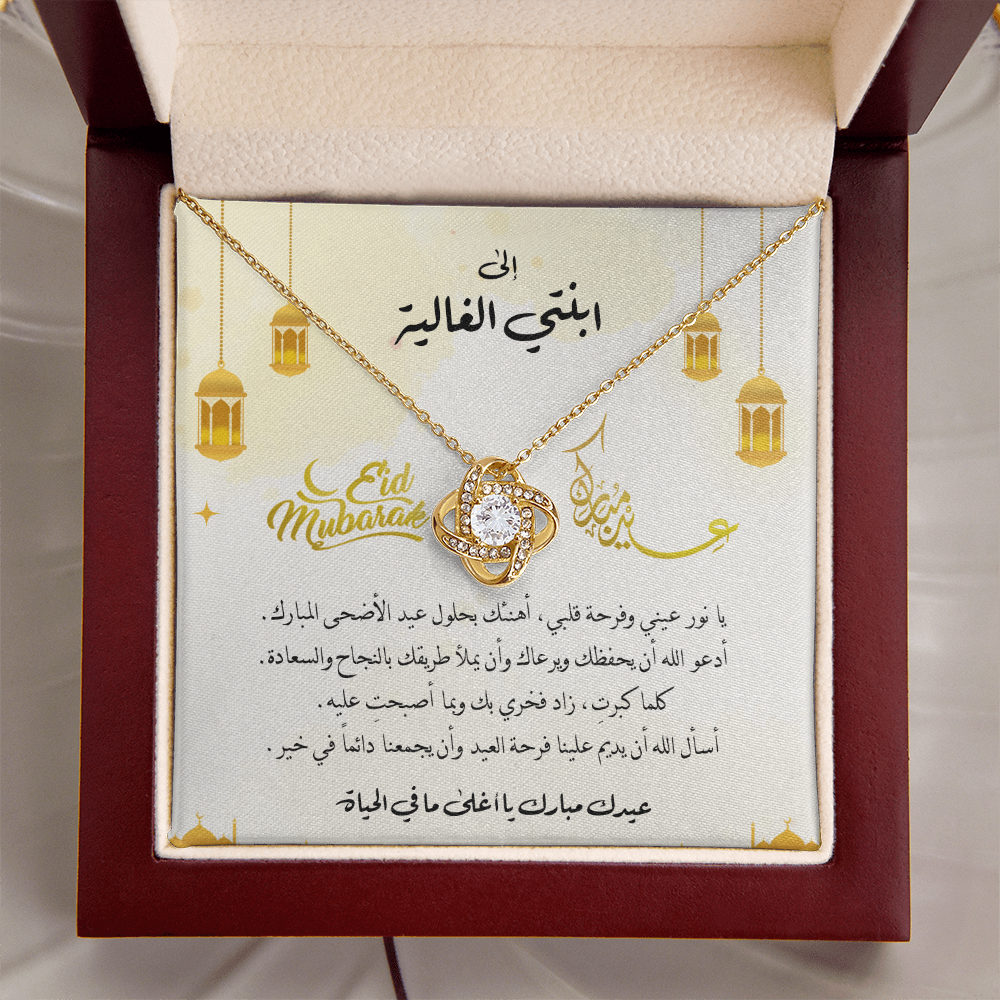 إلى
ابنتي الغالية
Eid
Mubarak
عيد مبارك
يا نور عيني وفرحة قلبي، أهنئك بحلول عيد الأضحى المبارك.
أدعو الله أن يحفظك ويرعاك وأن يملأ طريقك بالنجاح والسعادة.
كلما كبرتِ، زاد فخري بك وبما أصبحتِ عليه.
أسأل الله أن يديم علينا فرحة العيد وأن يجمعنا دائماً في خير.
عيدك مبارك يا أغلى ما في الحياة